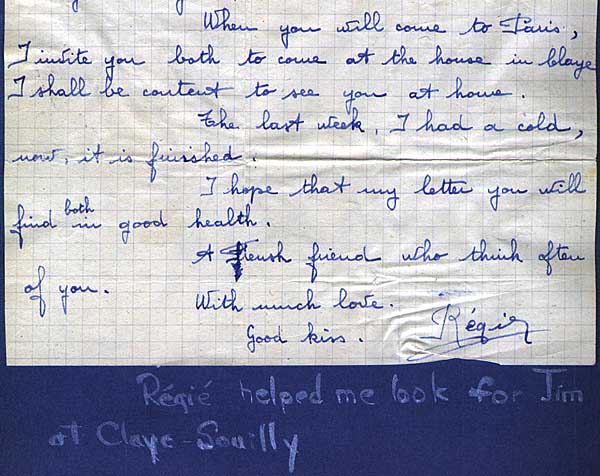 When you will come to Paris,
I invite you both to come at the house in Claye
I shall be content to see you at home.
The last week, I had a cold,
now, it is finished.
I hope that my letter you will
both
find in good health.
A french friend who think often
of you.
With much love.
Good kiss. Régie
Régié helped me look for Jim
at Claye-Souilly